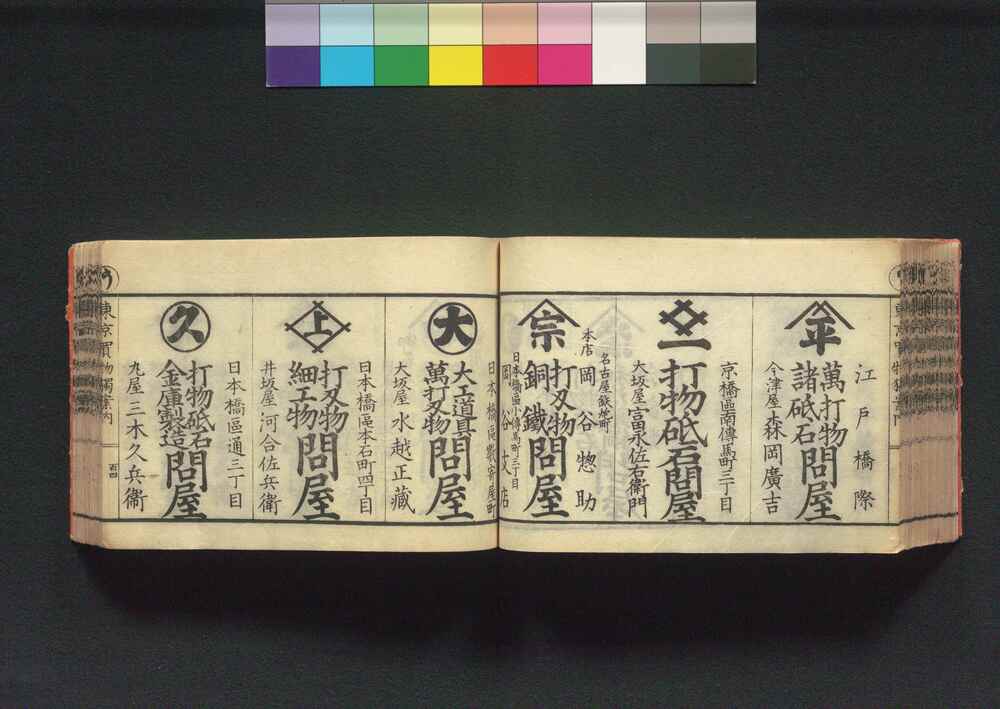 江戸橋際
平
萬打物
諸砥石
問屋
今津屋 森岡廣吉
京橋區南傳馬町三丁目
一
打物砥石問屋
大坂屋 富永佐右衛門
名古屋鉄砲町
本店 岡谷惣助
宗
打刄物
銅鐵
問屋
日本橋區小傳馬町三丁目
岡谷支店
日本橋區數寄屋町
大
大工道具
萬打刄物
問屋
大坂屋 水越正藏
日本橋區本石町四丁目
上
打刄物
細工物
問屋
井坂屋 河合佐兵衛
日本橋區通三丁目
久
打物砥石
金庫製造
問屋
九屋 三木久兵衛
う
東京買物獨案内
百四